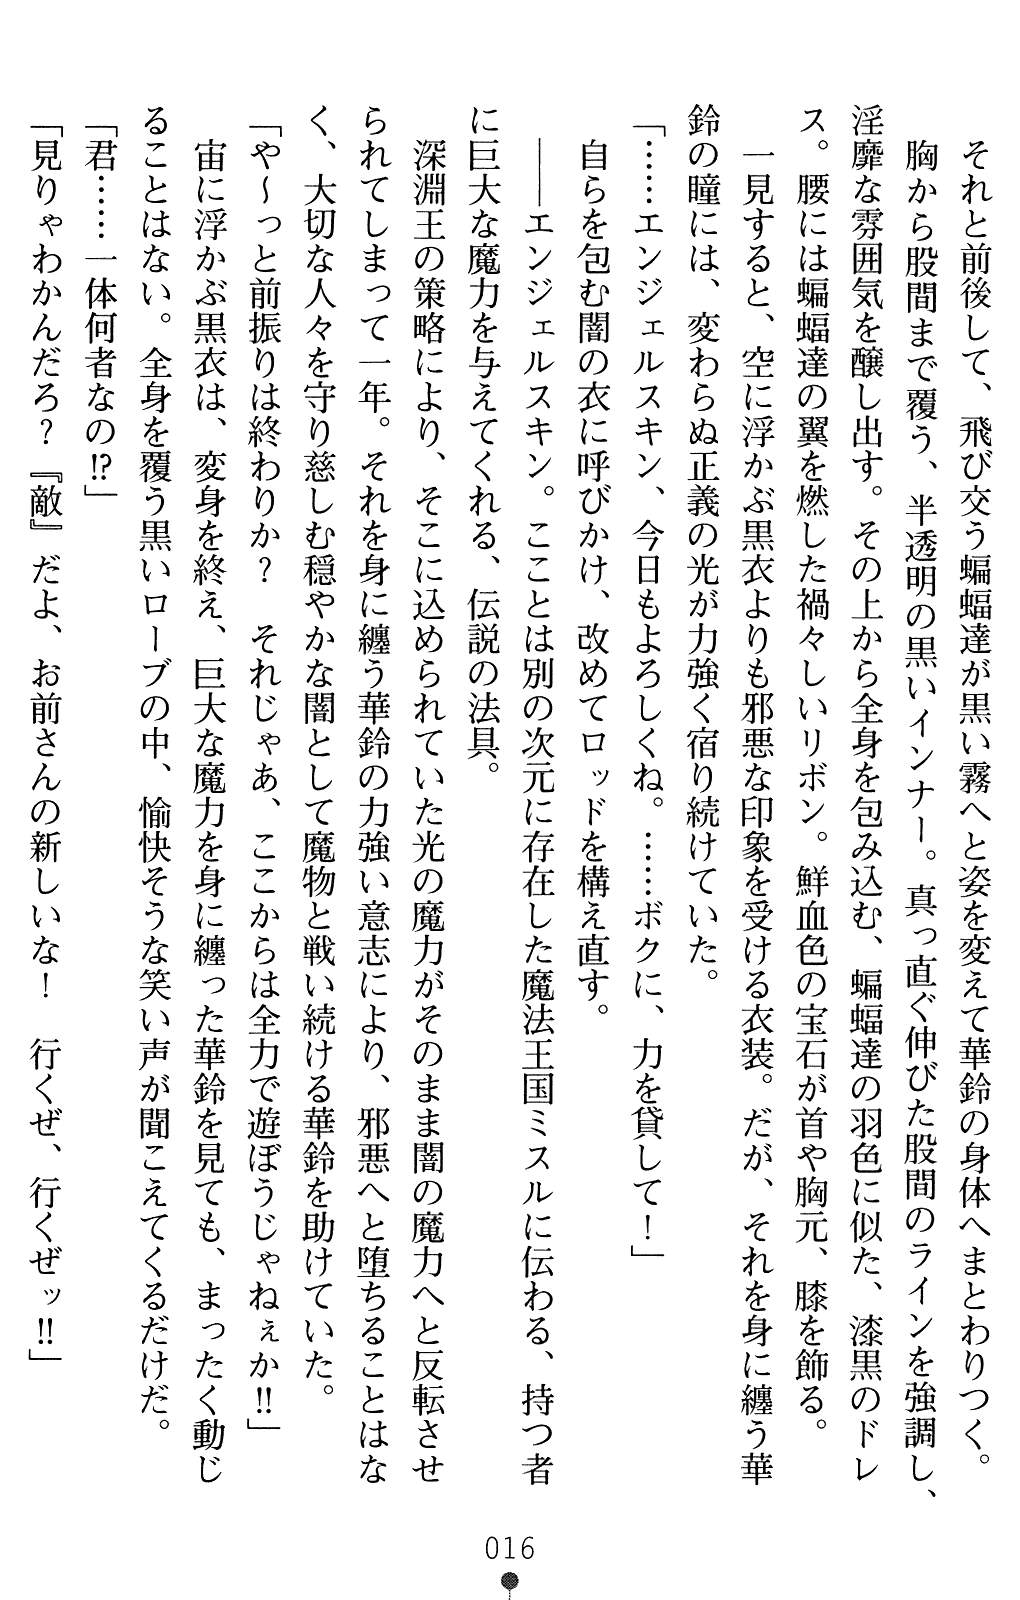 それと前後して、飛び交う蝙蝠達が黒い霧へと姿を変えて華鈴の身体へまとわりつく。
胸から股間まで覆う、半透明の黒いインナー。真っ直ぐ伸びた股間のラインを強調し、
淫靡な雰囲気を醸し出す。その上から全身を包み込む、蝙蝠達の羽色に似た、漆黒のドレ
ス。腰には蝙蝠達の翼を燃した禍々しいリボン。鮮血色の宝石が首や胸元、膝を飾る。
一見すると、空に浮かぶ黒衣よりも邪悪な印象を受ける衣装。だが、それを身に纏う華
鈴の瞳には、変わらぬ正義の光が力強く宿り続けていた。
「……エンジェルスキン、今日もよろしくね。……ボクに、力を貸して！」
自らを包む闇の衣に呼びかけ、改めてロッドを構え直す。
――エンジェルスキン。こことは別の次元に存在した魔法王国ミスルに伝わる、持つ者
に巨大な魔力を与えてくれる、伝説の法具。
深淵王の策略により、そこに込められていた光の魔力がそのまま闇の魔力へと反転させ
られてしまって一年。それを身に纏う華鈴の力強い意志により、邪悪へと堕ちることはな
く、大切な人々を守り慈しむ穏やかな闇として魔物と戦い続ける華鈴を助けていた。
「や～っと前振りは終わりか？　それじゃあ、ここからは全力で遊ぼうじゃねぇか!!」
宙に浮かぶ黒衣は、変身を終え、巨大な魔力を身に纏った華鈴を見ても、まったく動じ
ることはない。全身を覆う黒いローブの中、愉快そうな笑い声が聞こえてくるだけだ。
「君……一体何者なの!?」
「見りゃわかんだろ？　『敵』だよ、お前さんの新しいな！　行くぜ、行くぜッ!!」
016